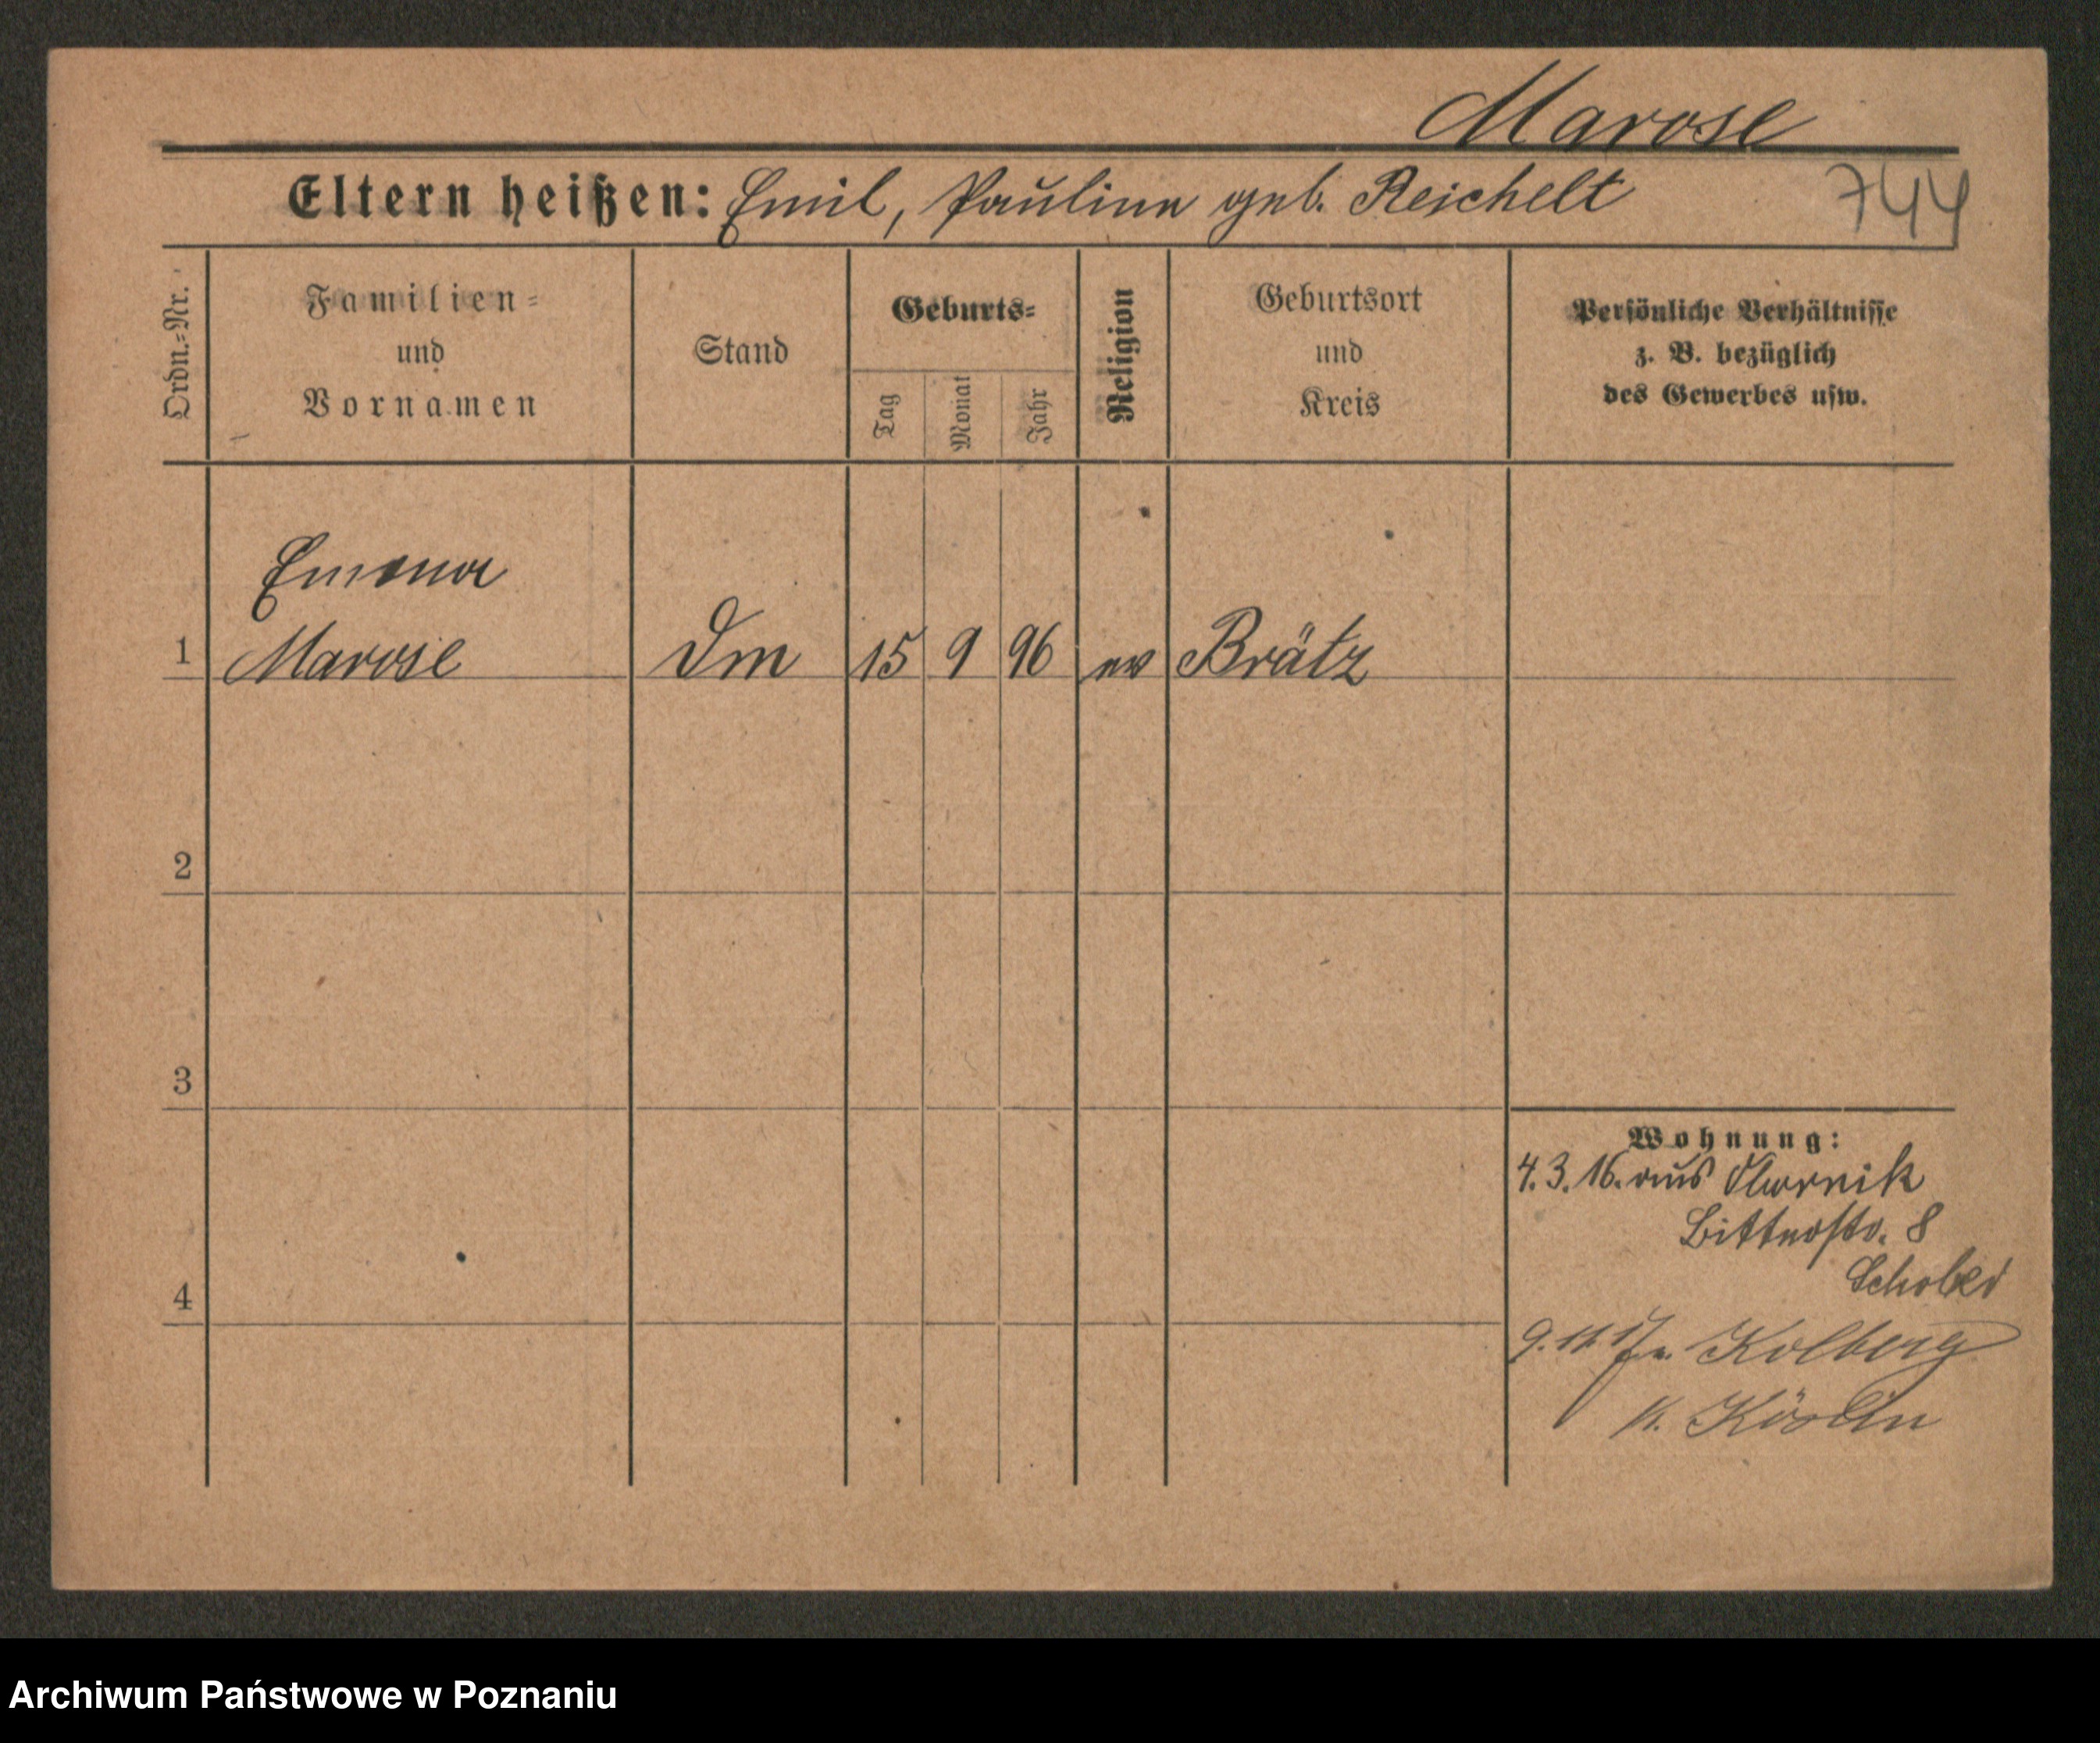 Marose
Eltern heißen: Emil, Pauline geb. Reichelt
744
Ordn.-Nr.
Familien-
und
Vornamen
Stand
Geburts-
Tag
Monat
Jahr
Religion
Geburtsort
und
Kreis
Persönliche Verhältnisse
z. B. bezüglich
des Gewerbes usw.
Emma
1 Marose Dm 15 9 96 ev Brätz
2
3
4
Wohnung:
4.3.16. aus Obornik
Bitterstr. 8
Schober
9.11.17 n. Kolberg
K. Köslin
Archiwum Państwowe w Poznaniu